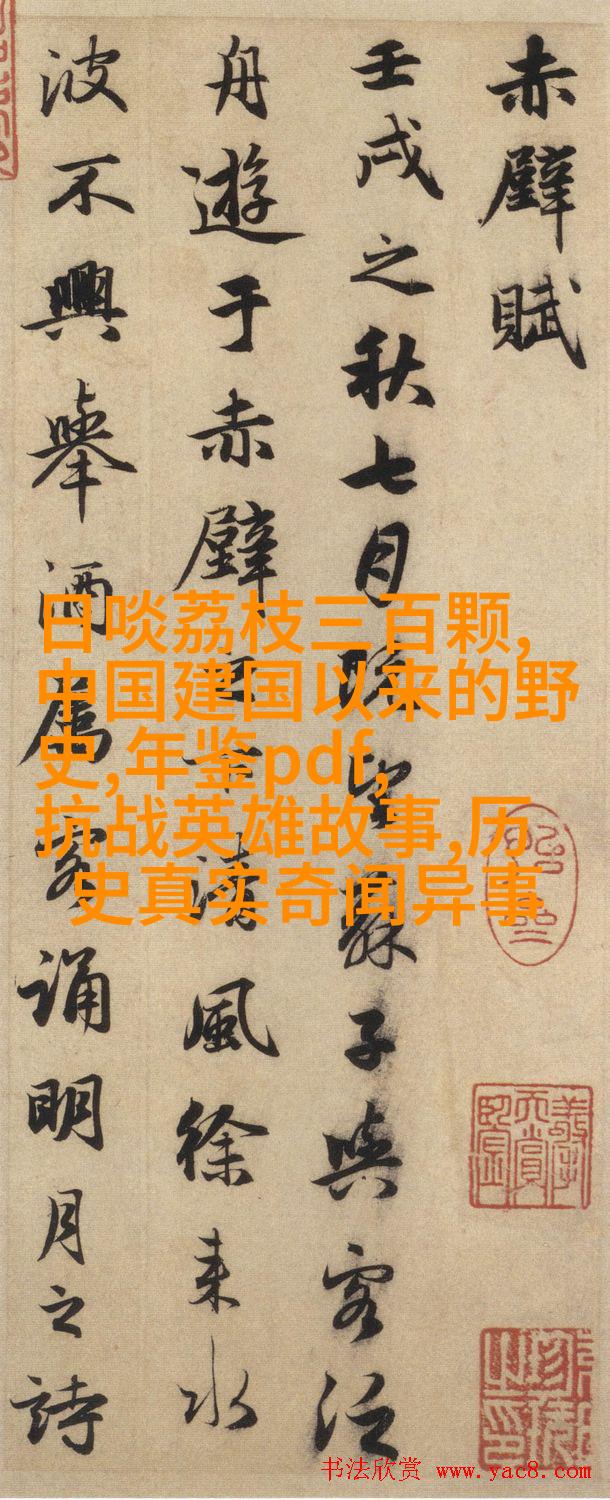 赤壁賦
壬戌之秋七月既望蘇子與客泛
舟遊于赤壁之下清風徐來水
波不興舉酒屬客誦明月之詩
日啖荔枝三百颗,
中国建国以来的野
史,年鉴pdf,
抗战英雄故事,历
史真实奇闻异事
书法欣赏 www.yac8.com